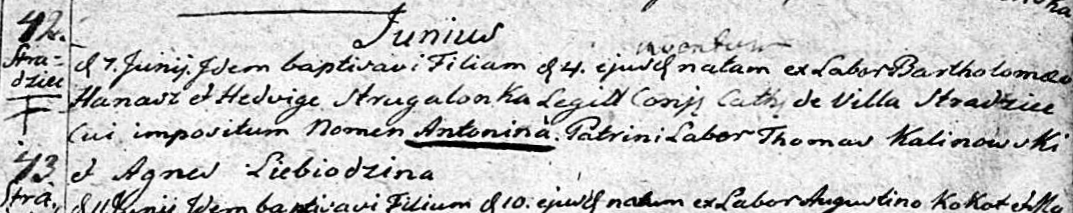 Junius
42. d 7. Junij. Idem baptisavi Filiam d 4. ejusd natam ex Labor Bartholomæo
Stra=
dziec Hanasz et Hedvige Strugalonka Legitt Conj Cath de Villa Stradziec
cui impositum Nomen Antonina. Patrini Labor Thomas Kalinowski
43 et Agnes Liebiodzina
Stra. d 11 Junij Idem baptisavi Filium d 10. ejusd natum ex Labor Augustino Kokot et Ma